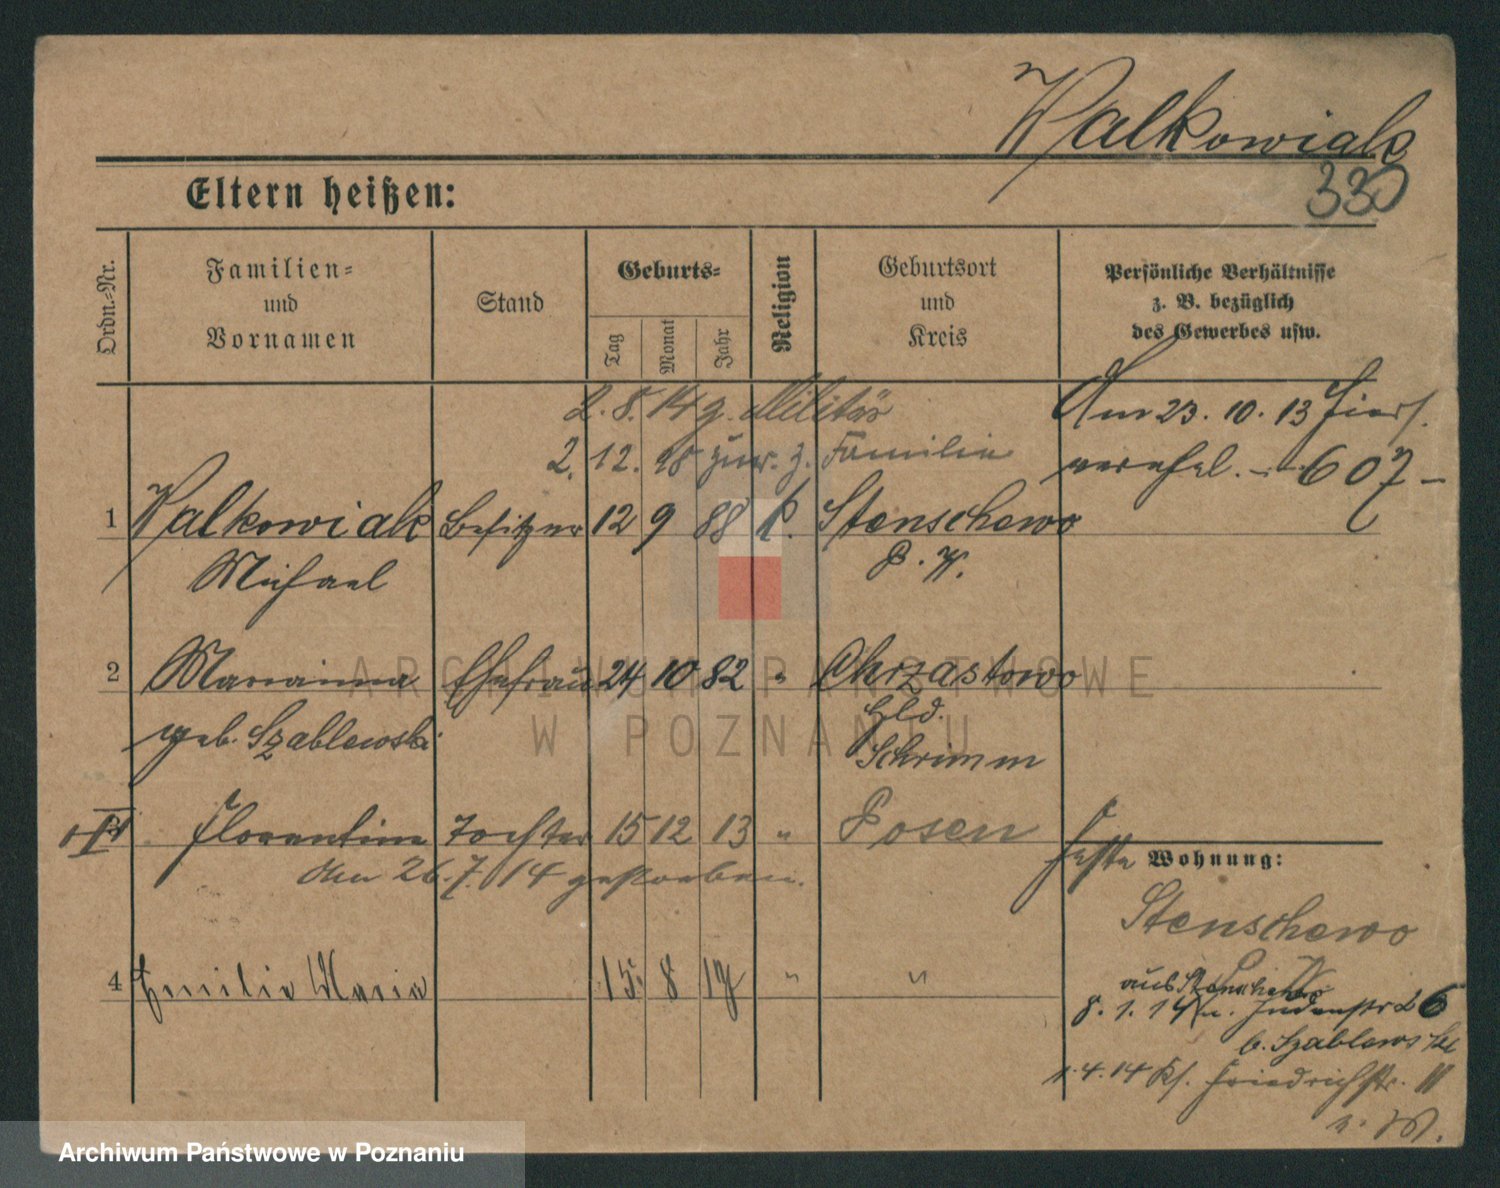 Walkowiak
330
Eltern heißen:
Ordn.-Nr.
Familien-
und
Vornamen
Stand
Geburts-
Tag
Monat
Jahr
Religion
Geburtsort
und
Kreis
Persönliche Verhältnisse
z. B. bezüglich
des Gewerbes usw.
2. 8. 14 z. Militär
2. 12. 18 zur. z. Familie
Am 23. 10. 13 hier
verehel. - 607 -
1 Walkowiak Besitzer 12 9 88 k. Stenschewo
Michael P. W.
2 Marianna Ehefrau 24 10 82 " Chrzastowo
geb. Szablewski
Schrimm
Florentine Tochter 15 12 13 " Posen
den 26. 7. 14 gestorben.
feste Wohnung:
Stenschewo
P. W.
4 Emilie Maria 15. 8 17 " "
aus Stenschewo
8. 1. 14 n. Judenstr 26
b. Szablewski
1. 4. 14 Kl. Friedrichstr. 11
v. W.
ARCHIWUM PAŃSTWOWE
W POZNANIU
Archiwum Państwowe w Poznaniu